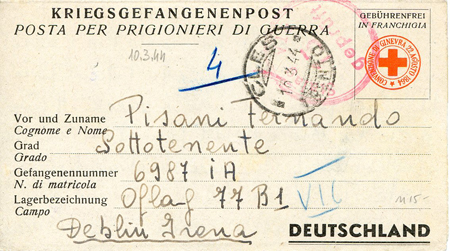 KRIEGSGEFANGENENPOST
POSTA PER PRIGIONIERI DI GUERRA
GEBÜHRENFREI
IN FRANCHIGIA
CONVENZIONE DI GINEVRA 22 AGOSTO 1864
10.3.44
4
CLES
TRENTO
10.3.44
geprüft
Vor und Zuname Pisani Fernando
Cognome e Nome
Grad Sottotenente
Grado
Gefangenennummer 6987 iA
N. di matricola
Lagerbezeichnung Oflag 77 B1 VII
Campo Deblin Irena
11 15-
DEUTSCHLAND